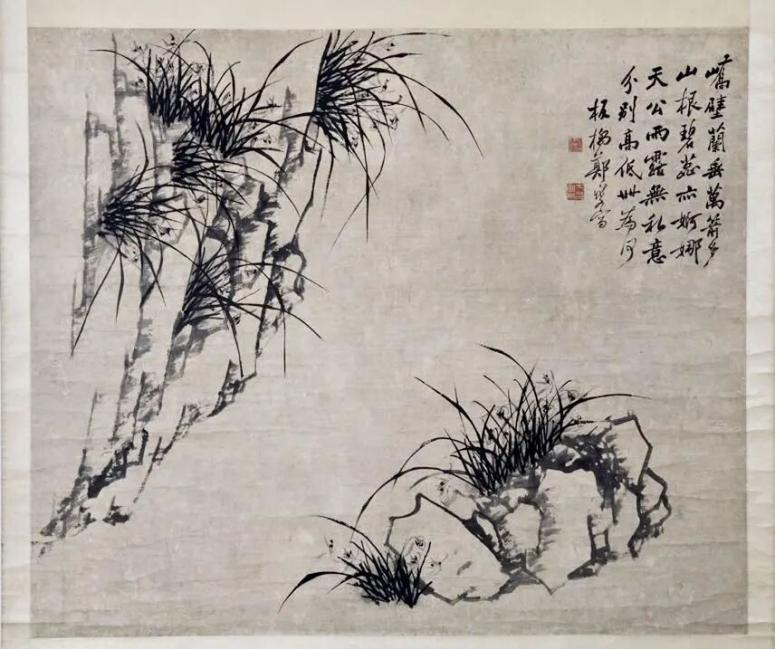 峭壁蘭垂萬箭多
山根碧蕊亦婀娜
天公雨露無私意
分別高低世為何
板橋鄭燮寫